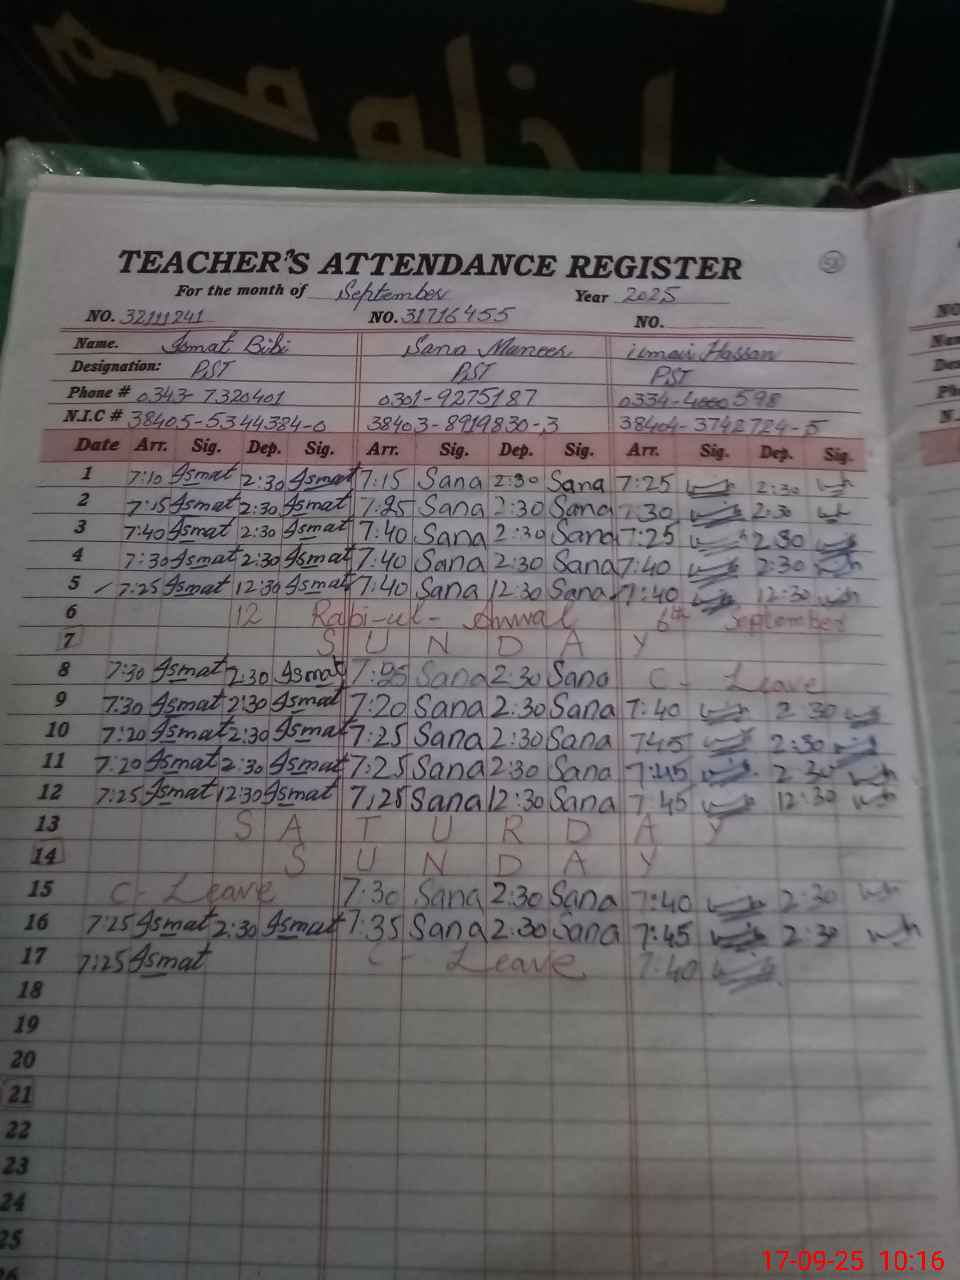 TEACHER'S ATTENDANCE REGISTER
For the month of September Year 2025
NO. 32111241 NO. 31716455 NO.
Name. Asmat Bibi Sana Muneer Umair Hassan
Designation: PST PST PST
Phone # 0343-7320401 0301-9275187 0334-4000598
N.I.C # 38405-5344384-0 38403-8919830-3 38404-3742724-5
Date Arr. Sig. Dep. Sig. Arr. Sig. Dep. Sig. Arr. Sig. Dep. Sig.
1 7:10 Asmat 2:30 Asmat 7:15 Sana 2:30 Sana 7:25 2:30
2 7:15 Asmat 2:30 Asmat 7:25 Sana 2:30 Sana 7:30 2:30
3 7:40 Asmat 2:30 Asmat 7:40 Sana 2:30 Sana 7:25 2:30
4 7:30 Asmat 2:30 Asmat 7:40 Sana 2:30 Sana 7:40 2:30
5 7:25 Asmat 12:30 Asmat 7:40 Sana 12:30 Sana 7:40 12:30
6 12 Rabi-ul-Awwal 6th September
7 SUNDAY
8 7:30 Asmat 2:30 Asmat 7:25 Sana 2:30 Sana C-Leave
9 7:30 Asmat 2:30 Asmat 7:20 Sana 2:30 Sana 7:40 2:30
10 7:20 Asmat 2:30 Asmat 7:25 Sana 2:30 Sana 7:45 2:30
11 7:20 Asmat 2:30 Asmat 7:25 Sana 2:30 Sana 7:45 2:30
12 7:25 Asmat 12:30 Asmat 7:25 Sana 12:30 Sana 7:45 12:30
13 SATURDAY
14 SUNDAY
15 C-Leave 7:30 Sana 2:30 Sana 7:40 2:30
16 7:25 Asmat 2:30 Asmat 7:35 Sana 2:30 Sana 7:45 2:30
17 7:25 Asmat C-Leave 7:40
18
19
20
21
22
23
24
25
26
17-09-25 10:16